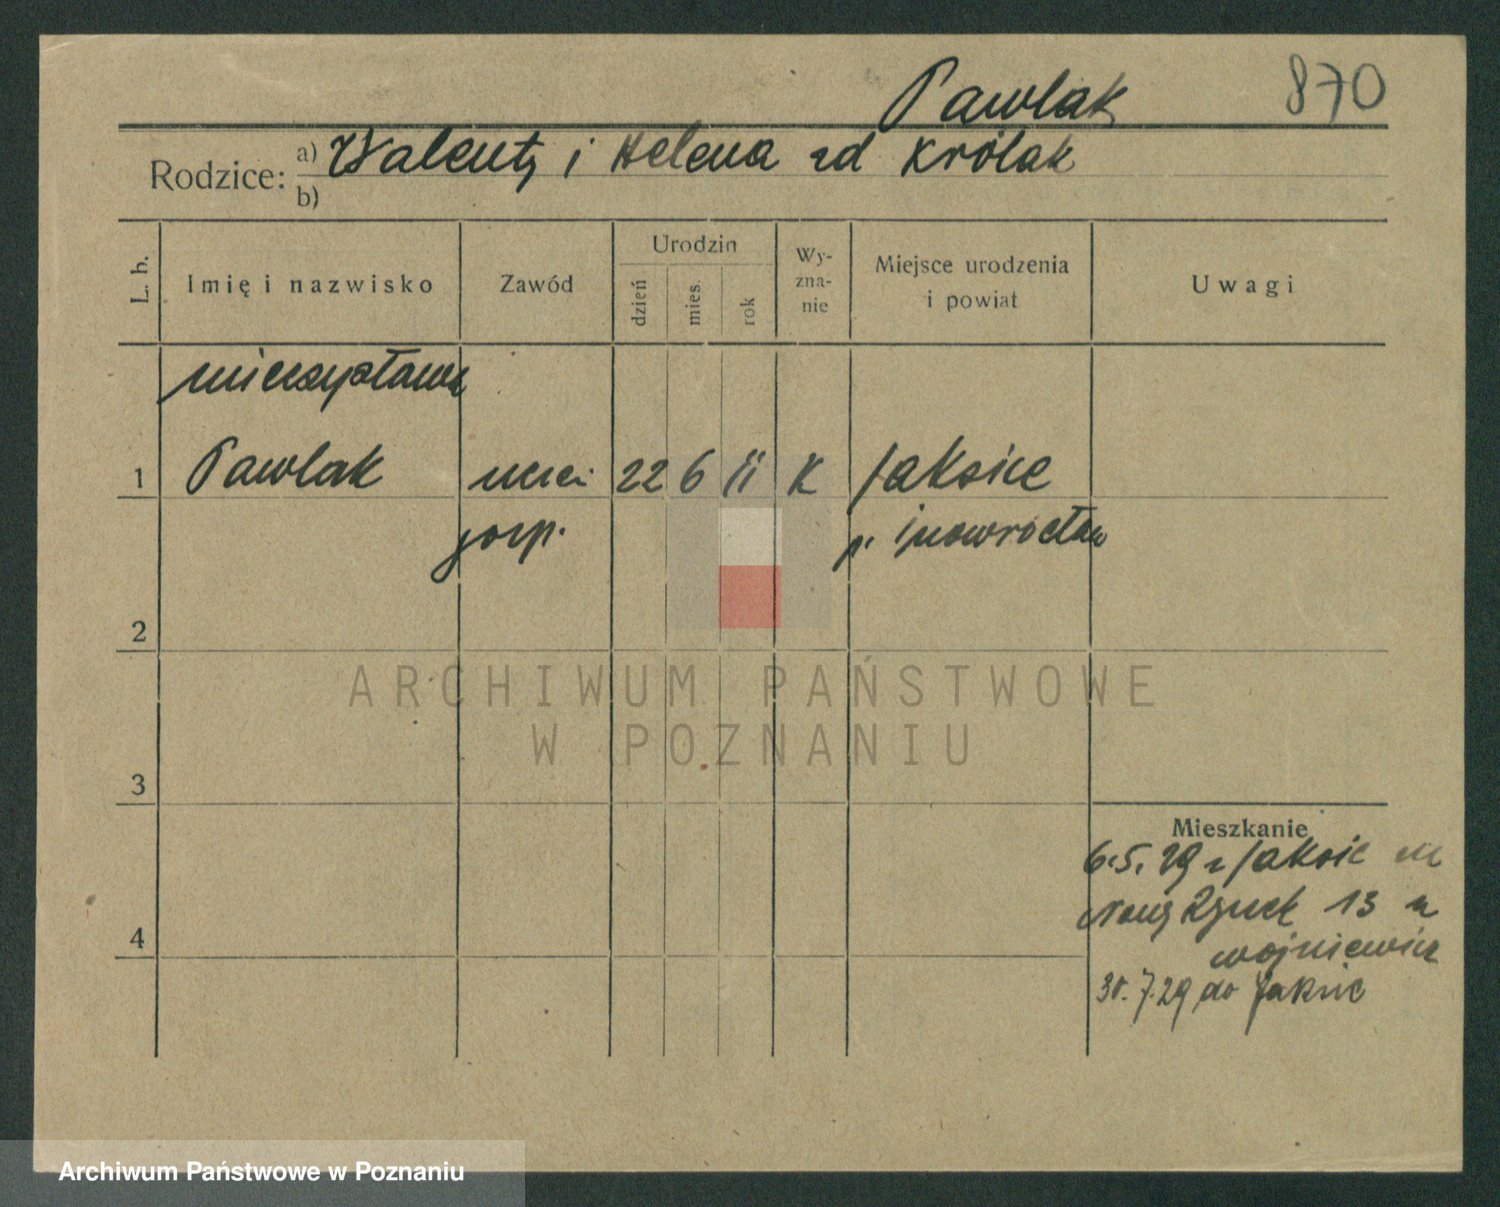 Pawlak 870
Rodzice: a) Walenty i Helena zd Królak
b)
L. b. Imię i nazwisko Zawód Urodzin dzień mies. rok Wy-zna-nie Miejsce urodzenia i powiat Uwagi
Mieczysława
1 Pawlak ucz. 22 6 11 K Jaksice
gosp. p. Inowrocław
2
ARCHIWUM PAŃSTWOWE
W POZNANIU
3
Mieszkanie
6.5.29 z Jaksic
4 Nowy Rynek 13 u
Wojniewicz
30.7.29 do Jaksic
Archiwum Państwowe w Poznaniu